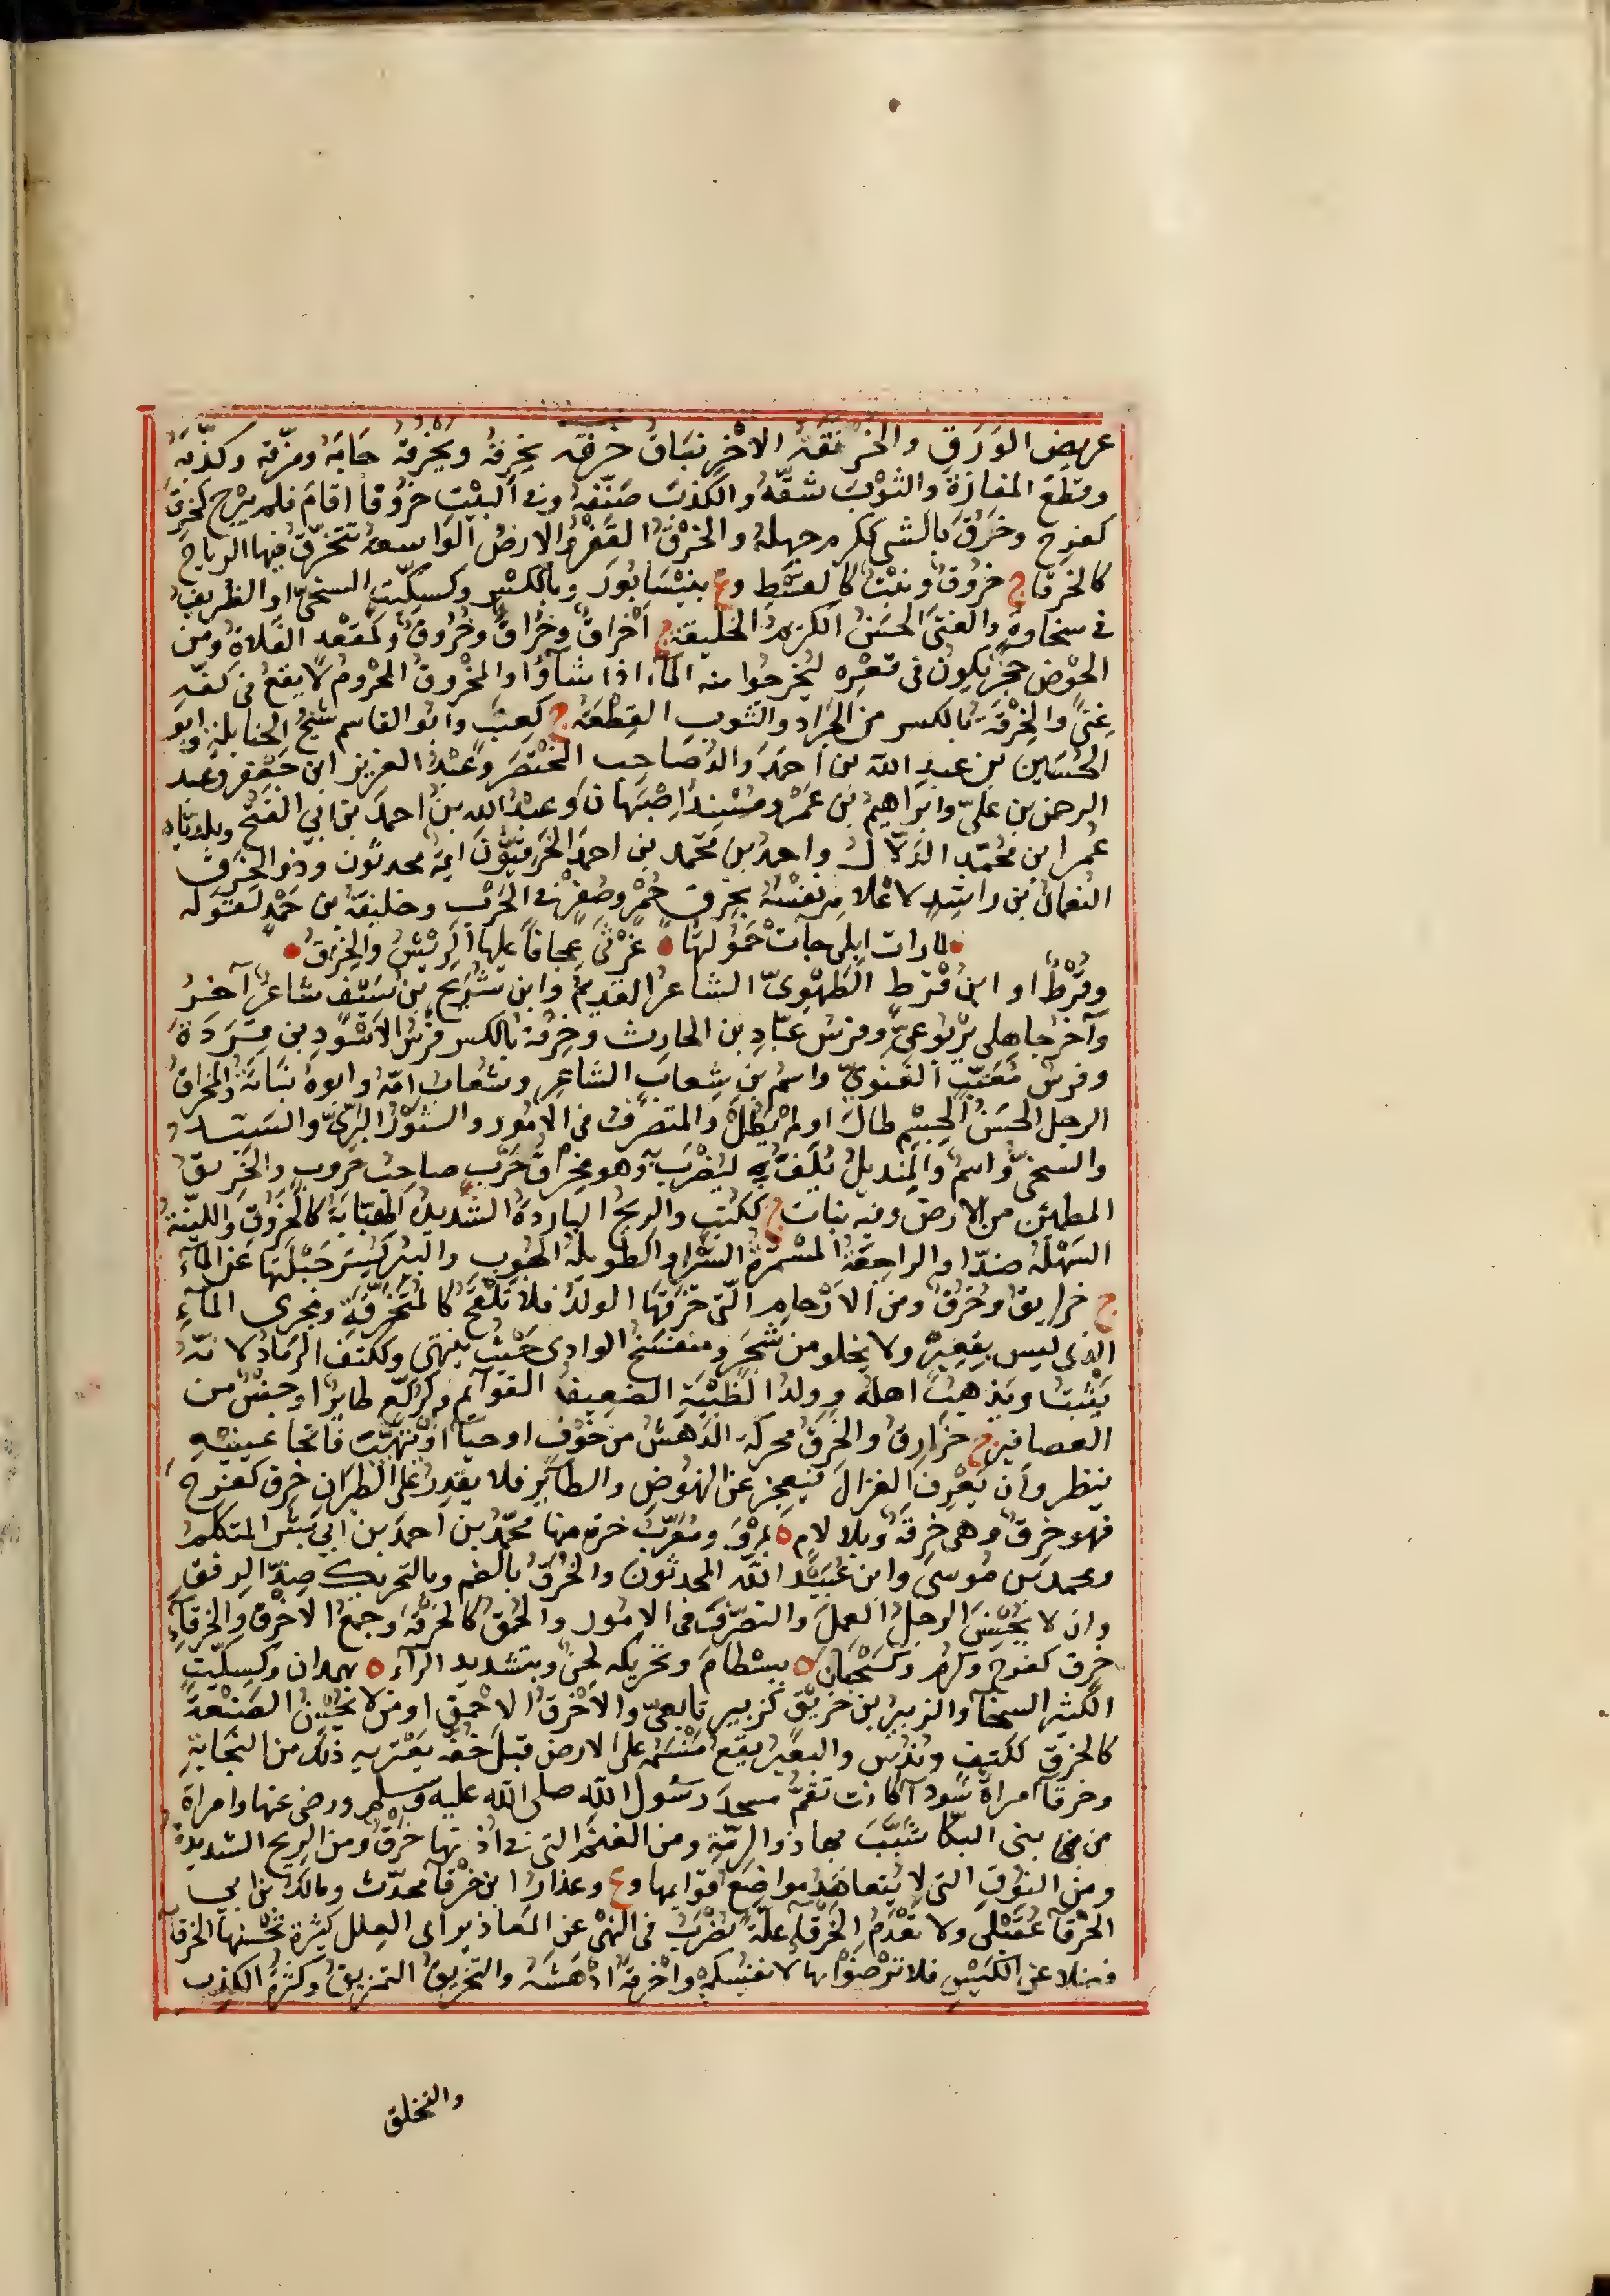 عريض الوَرَقِ والخَرْنَقَةُ الاخْرِنْبَاقُ خَرقه يَخرِقهُ ويَخْرُقهُ جَابَهُ ومزّقه وكذّبَهُ
وقطَعَ المفازَةَ والثَوْبَ شقّهُ والكذبَ صَنّعَهُ وفى البيْتِ خرُوقًا اقامَ فلم يبْرح كخرِقَ
كفرِح وخَرُقَ بالشى ككرم جهلهُ والخَرْقُ القَفْرُ والارضُ الوَاسعهُ تتخرّقُ فيها الرياحُ
كالخرقا ج خروُق ونبْتٌ كالقسْطِ وع بنَيْسَابُورَ وبالكسْرِ وكسِكّيت السخىّ او الظريف
فى سخاوةٍ والفتى الحسَنُ الكريمُ الخليقة ج اخراقٌ وخُرّاقٌ وخُرُوقٌ وكمَقْعد الفَلاةُ ومن
الحَوْض حجرٌ يكونُ فى قعْرِهِ ليُخرجوا منه المآء اذا شآؤا والمخْروقُ المحْرومُ لا يقعُ فى كفّهِ
غِنًى والخِرْقَةُ بالكسر من الجرَادِ والثوبِ القِطْعَهُ ج كعِنَب وابو القاسم شيخُ الحنابلة وابو
الحُسَين بن عبدِ الله بن احمَدَ والدُ صَاحب المختصَرِ وعَبْدُ العزيز ابن جَعْفر وعبد
الرحمن بن علىّ وابرَاهِيمُ بن عَمْرو مُسْنِدُ اصْبَهانَ وعبدُ الله بنُ احمدَ بن ابى الفتح وبلديّاه
عُمر ابن محُمّدِ الدَلّال واحمد بن محمّد بن احمدَ الخِرَقيّونَ ايمة محدثون وذو الخِرَقِ
النعمانُ بن راشِدٍ لاعْلامِهِ نَفْسَهُ بخِرَق حُمْرٍ وصُفْرٍ فى الحَرْبِ وخليفةُ بن حَمَدٍ لقَوْله
لما رات ابلى جاتْ حَمُولتُها غَرْثَى عِجافًا عليها الرِيْشُ والخِرَقُ
وقُرْطٌ او ابنُ قُرْط الطَهْوِىّ الشاعرُ القديمُ وابن شُرَيح بن سَيْف شاعرٌ آخَرُ
وآخرُ جاهلى يَرْبُوعىّ وفرسُ عَبّادِ بن الحارث وخِرْقةُ بالكسر فَرسُ الاسْوَدِ بن قِرَدَةَ
وفرسُ مُعَتِّب الغنوىّ واسمُ بن شِعاب الشاعِر وشعاب امّهُ وابوهُ نُبَاتهُ والمخراقُ
الرجل الحسَنُ الجسْمِ طالَ او لم يَطُلْ والمتصَرّفُ فى الامُور والثوْرُ البَرّىّ والسَيّدُ
والسخىُّ واسمٌ والمِنديلُ يُلَفّ به ليُضْرَبَ به وهو مِخراقُ حَرْب صاحِبُ حروبٍ والخَريقُ
المطمئن من الارض وفيه نبات ج ككُتب والرِيحُ البارِدةُ الشديدهُ الهَبّابَةُ كالخَرُوقِ واللَيّنةُ
السَهْلَهُ ضدّ او الراجعَةُ المسْتمرّةُ السَيْرِ او الطويلهُ الهُبُوبِ والبير كُسِرَ جَبْلَتُهَا عن المآءِ
ج خرايق وخُرُقٌ ومن الارْحامِ التى خَرّقَهَا الولدُ فلا تَلْقَحُ كالمُتَخَرّقَة ومجرى المآءِ
الذى ليس بِقعِيْرٍ ولا يخلو من شَجَرٍ ومنفسَحُ الوادى حَيْث ينتهى وككتفِ الرمَادُ لانّه
يَثْبُتُ ويَذْهَبُ اهله وولدُ الظَبْيَةِ الضعيفُ القوآئم وكرُكّع طايرٌ او جنسٌ من
العصافير ج خرارِق والخَرَقُ محركة الدَهَشُ من خَوْفٍ او حيآءٍ او ان يُبْهَتَ فاتحًا عينَيْهِ
ينظر وان يَفْرِقَ الغزالُ فيعجِزَ عن النهُوضِ والطآئِر فلا يقدِرُ على الطيَرانِ خرِق كفرِحَ
فهو خرِقٌ وهى خرِقَةٌ وبلا لامٍ ه بمرْوَ ومُعَرّبُ خرَه منها محمّدُ بن احمدَ بن ابى بَشر المتكلمُ
ومحمد بن مُوسَى وابن عُبَيْد الله المحدثونَ والخُرْقُ بالضم وبالتحريك ضِدّ الرِفقِ
وان لا يُحْسِنَ الرجلُ العملَ والتصرّفَ فى الامُور والحُمْقُ كالخُرْقَةِ وجمعُ الاخْرَقِ والخرقآءِ
خرق كفرح وكرم وكسَحْبَانَ ه ببسْطامَ وتحريكه لحنٌ وبتشديد الرآءِ ه بهمدان وكسكّيتٍ
الكثيرُ السخآءِ والزبيرُ بن خُرَيْقٍ كزبير تابعىّ والاَخْرَقُ الاحمق او من لا يُحْسِنُ الصَنْعَةَ
كالخَرق ككتف وندُسٍ والبعيرُ يقعُ مَنْسِمُهُ على الارض قبل خُفّهِ يَعْتريهِ ذلك من النجَابَةِ
وخرقآءُ امراةٌ سَودآء كانت تقمُّ مسجدَ رسُول الله صلى الله عليه وسلم ورضى عنها وامراةٌ
من بنى البكّآ شَبَّبَ بها ذو الرِمّةِ ومن الغنَمِ التى فى اذنها خَرْقٌ ومن الرِيح الشديدةُ
ومن النوْقِ التى لا تتعاهَدُ مواضعَ قوَايمها وع وعذارُ ابن خَرْقآءَ محدّث ومالكُ بن ابى
الخرقآءِ عُقَيْلى ولا تَعْدَمُ الخَرْقَآءُ علّةً يُضْرَبُ فى النهْى عن المعاذير اى العِلل كثيرةٌ تُحْسِنها الخرقآءُ
فضلا عن الكَيْسِ فلا ترْضَوْا بها لانفسكم واخرقهُ ادْهَشَهُ والتخريقُ التمزيقُ وكثرةُ الكذِب
والتخلق